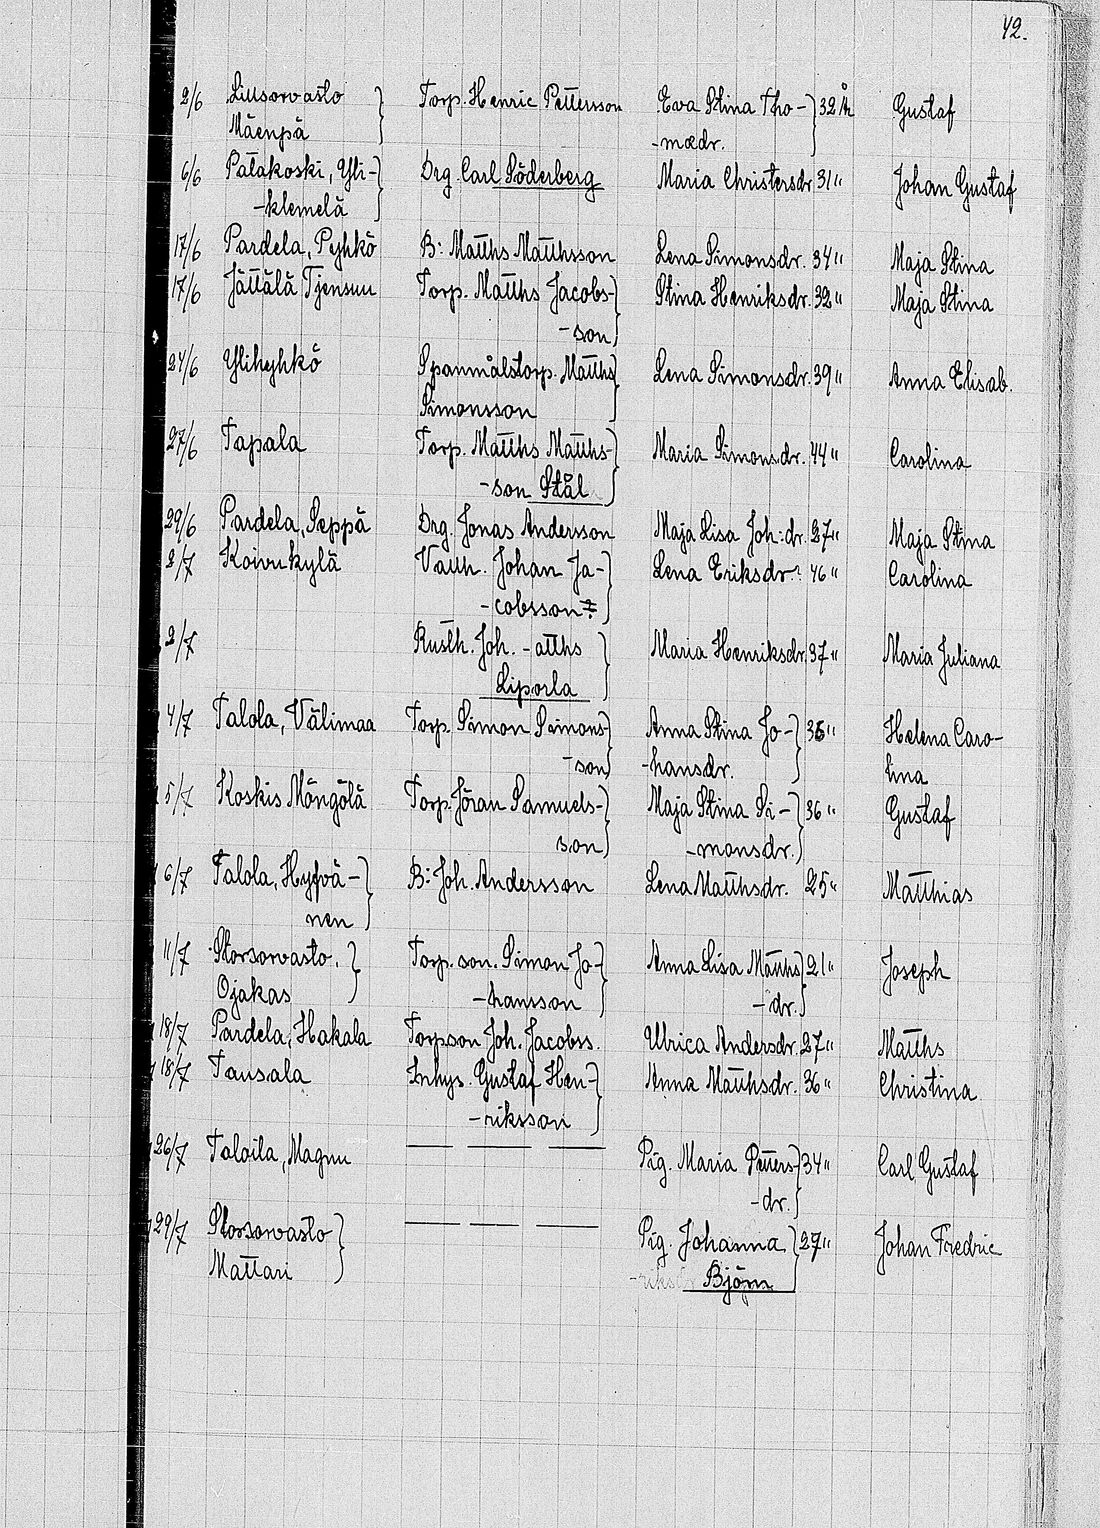 42.
2/6 Lillsorvasto } Torp. Henric Pettersson Eva Stina Tho- } 32 år Gustaf
Mäenpä -mædr.
6/6 Palakoski, Yli- } Drg. Carl Söderberg Maria Christersdr. 31 " Johan Gustaf
-klemelä
17/6 Pardela, Pyhkö B: Matths Matthsson Lena Simonsdr. 34 " Maja Stina
17/6 Jättälä Tjensuu Torp. Matths Jacobs- } Stina Henriksdr. 32 " Maja Stina
-son
24/6 Ylikyhkö Spanmålstorp. Matths } Lena Simonsdr. 39 " Anna Elisab.
Simonsson
27/6 Tapala Torp. Matths Matths- } Maria Simonsdr. 44 " Carolina
-son Stål
29/6 Pardela, Seppä Drg. Jonas Andersson Maja Lisa Joh:dr. 27 " Maja Stina
2/7 Koivukylä Vallh. Johan Ja- } Lena Eriksdr. 46 " Carolina
-cobsson
2/7 Rusth. Joh. -atths } Maria Henriksdr. 37 " Maria Juliana
Liporla
4/7 Talola, Välimaa Torp. Simon Simons- } Anna Stina Jo- } 35 " Helena Caro-
-son -hansdr. lina
5/7 Koskis Möngölä Torp. Jöran Samuels- } Maja Stina Si- } 36 " Gustaf
son -monsdr.
6/7 Talola, Hyfvä- } B: Joh. Andersson Lena Matthsdr. 25 " Matthias
nen
11/7 Storsorvasto. } Torp. son. Simon Jo- } Anna Lisa Matths } 21 " Joseph
Ojakas -hansson -dr.
18/7 Pardela, Hakala Torpson Joh. Jacobss. Ulrica Andersdr. 27 " Matths
18/7 Tausala Inhys. Gustaf Hen- } Anna Matthsdr. 36 " Christina
-riksson
26/7 Taloila, Magnu — — — Pig. Maria Petters- } 34 " Carl Gustaf
-dr.
29/7 Storsorvasto } — — — Pig. Johanna } 27 " Johan Fredric
Mattari Björn